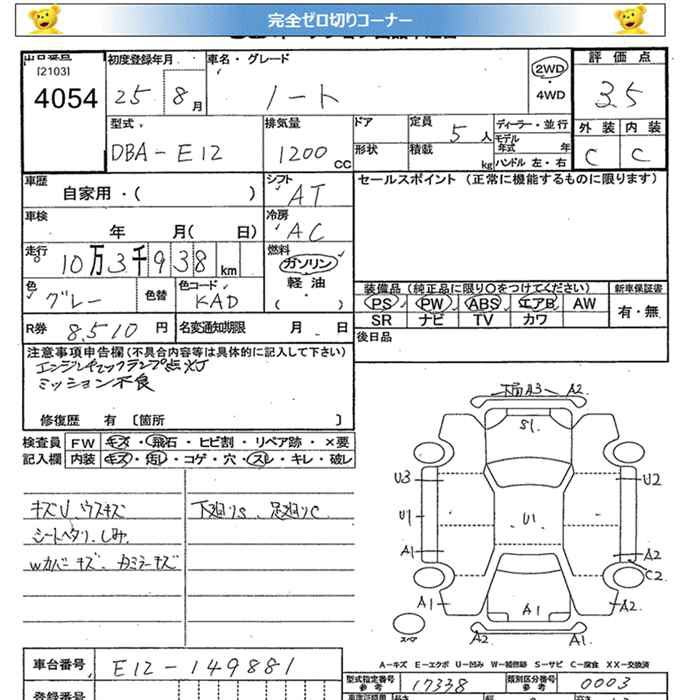 完全ゼロ切りコーナー
出品番号 初度登録年月 車名・グレード 評価点
[2103]
4054 25 8月 ノート 2WD ・ 4WD 3.5
外装 内装
C C
型式 排気量 ドア 定員 5人 ディーラー・並行
DBA-E12 1200CC 形状 積載 kg モデル年式 年
ハンドル 左・右
車歴 シフト セールスポイント (正常に機能するものに限ります)
自家用・( ) AT
車検 冷房
年 月( 日) AC
走行 燃料
10万3千938km ガソリン
軽油
( )
色 色替 色コード 装備品 (純正品に限り○をつけてください) 新車保証書
グレー KAD PS PW ABS エアB AW 有・無
SR ナビ TV カワ
R券 8,510円 名変通知期限 月 日 後日品
注意事項申告欄 (不具合内容等は具体的に記入して下さい)
エンジンチェックランプ点灯
ミッション不良
修復歴 有 〔箇所 〕
検査員 FW キズ・飛石・ヒビ割・リペア跡・×要
記入欄 内装 キズ・汚レ・コゲ・穴・スレ・キレ・破レ
キズU、ウスキズ
シートヘタリ、しみ
Wカバーキズ、カミラーキズ
下廻りS、足廻りC
A3 A2
S1
U3 U2
U1 U1
A1 A2
C2
A1 A1 A2
スペア A2 A1
A-キズ E-エクボ U-凹み W-補修跡 S-サビ C-腐食 XX-交換済
車台番号 E12-149881
型式指定番号 参考 17338 類別区分番号 参考 0003
登録番号